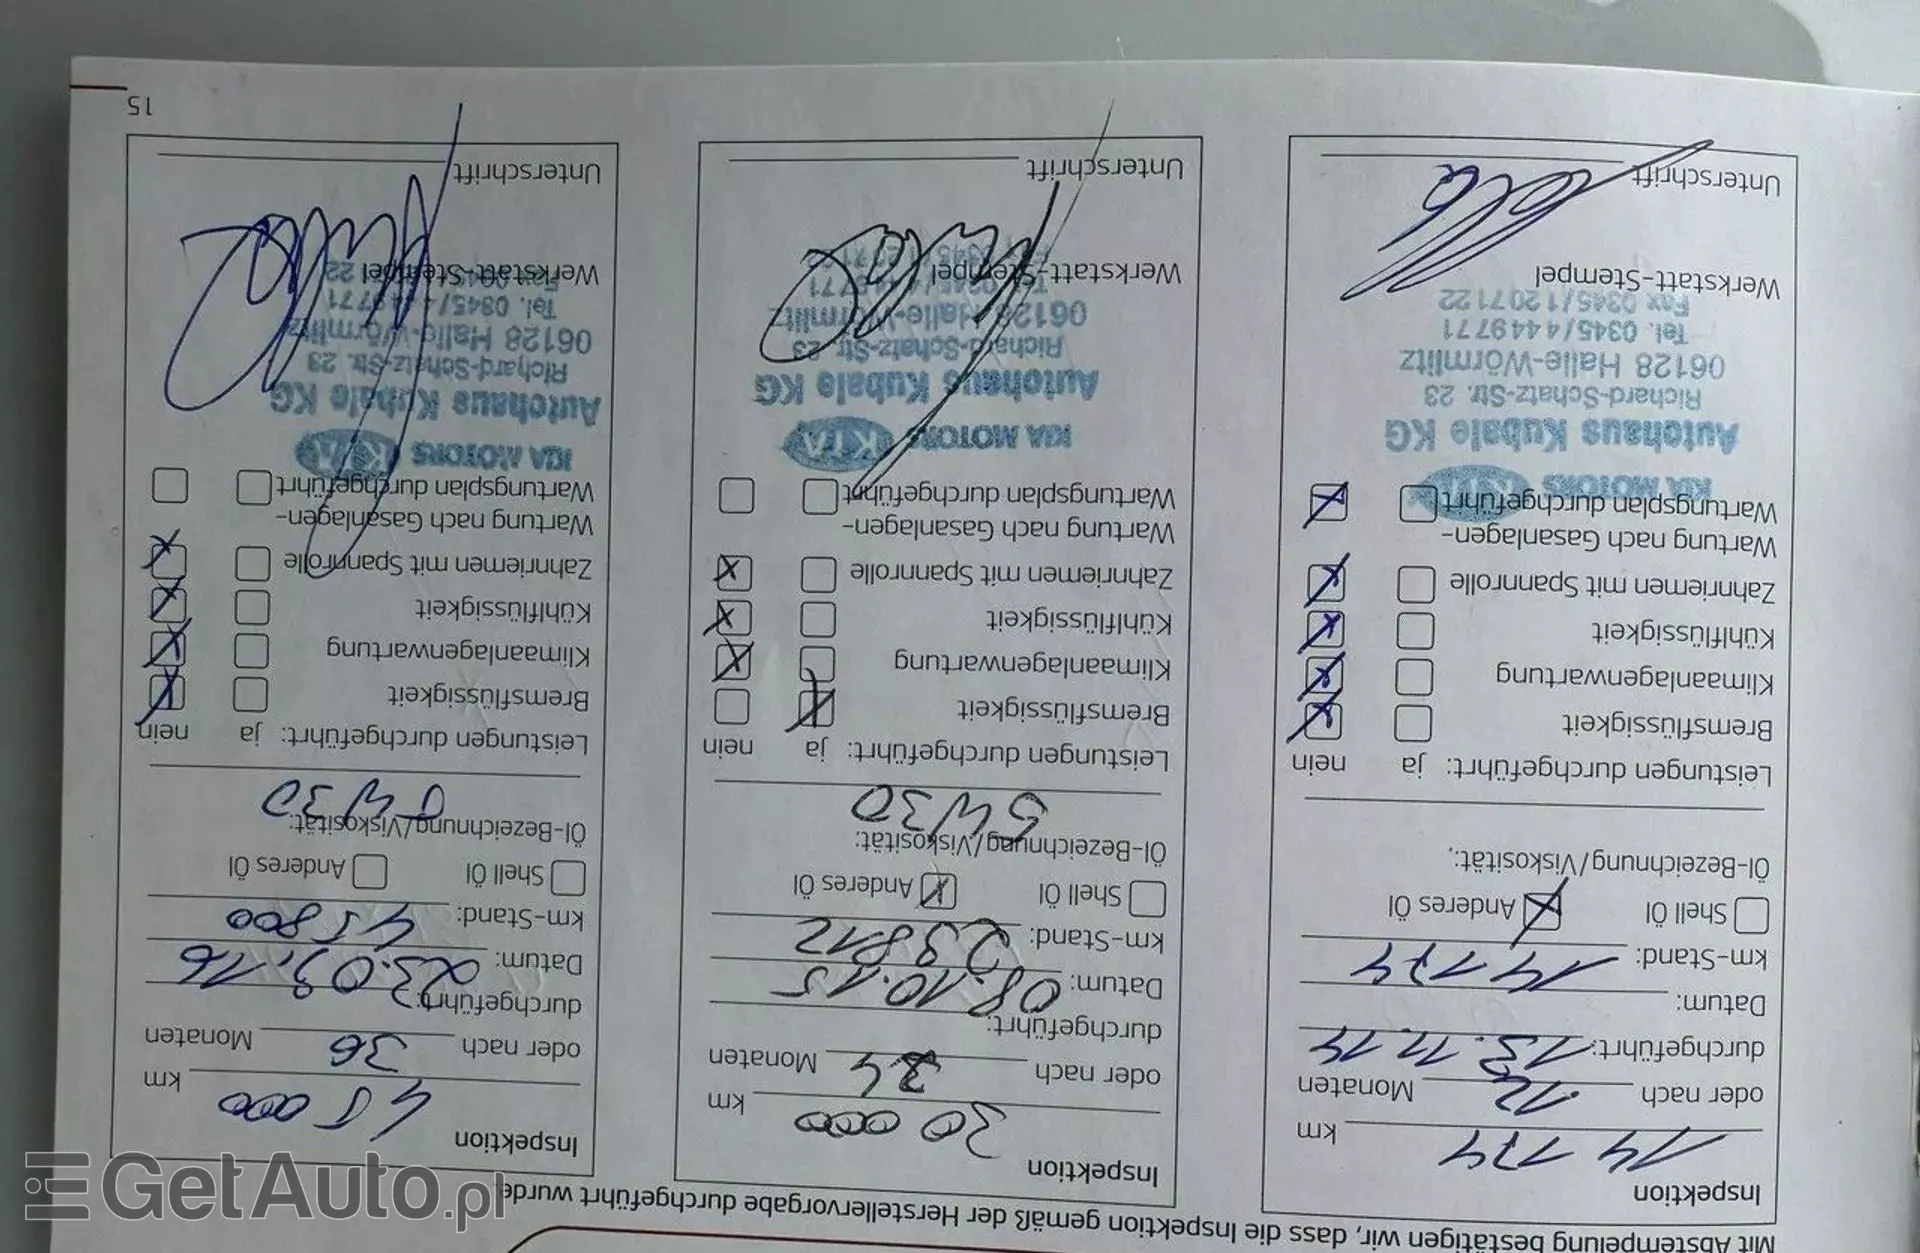 Mit Abstempelung bestätigen wir, dass die Inspektion gemäß der Herstellervorgabe durchgeführt wurde
Inspektion
14 174 km
oder nach 12 Monaten
durchgeführt: 13.11.14
Datum:
km-Stand: 14 174
Shell Öl Anderes Öl
Öl-Bezeichnung/Viskosität:
Leistungen durchgeführt: ja nein
Bremsflüssigkeit
Klimaanlagenwartung
Kühlflüssigkeit
Zahnriemen mit Spannrolle
Wartung nach Gasanlagen-
Wartungsplan durchgeführt
KIA MOTORS KIA
Autohaus Kubale KG
Richard-Schatz-Str. 23
06128 Halle-Wörmlitz
Tel. 0345/4449771
Fax 0345/1207122
Werkstatt-Stempel
Unterschrift
Inspektion
30 000 km
oder nach 24 Monaten
durchgeführt:
Datum: 08.10.15
km-Stand: 23812
Shell Öl Anderes Öl
Öl-Bezeichnung/Viskosität:
5W30
Leistungen durchgeführt: ja nein
Bremsflüssigkeit
Klimaanlagenwartung
Kühlflüssigkeit
Zahnriemen mit Spannrolle
Wartung nach Gasanlagen-
Wartungsplan durchgeführt
KIA MOTORS KIA
Autohaus Kubale KG
Richard-Schatz-Str. 23
06128 Halle-Wörmlitz
Werkstatt-Stempel
Unterschrift
Inspektion
45 000 km
oder nach 36 Monaten
durchgeführt:
Datum: 23.09.16
km-Stand: 45800
Shell Öl Anderes Öl
Öl-Bezeichnung/Viskosität:
5W30
Leistungen durchgeführt: ja nein
Bremsflüssigkeit
Klimaanlagenwartung
Kühlflüssigkeit
Zahnriemen mit Spannrolle
Wartung nach Gasanlagen-
Wartungsplan durchgeführt
KIA MOTORS KIA
Autohaus Kubale KG
Richard-Schatz-Str. 23
06128 Halle-Wörmlitz
Tel. 0345/4449771
Werkstatt-Stempel
Unterschrift
15
GetAuto.pl